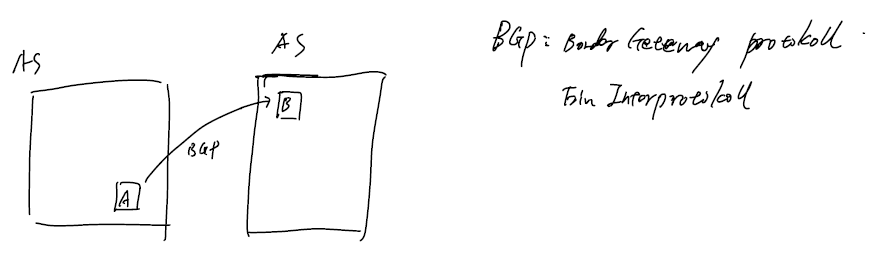 AS
AS
B
BGP
A
BGP: Border Gateway protokoll
Ein Interprotokoll